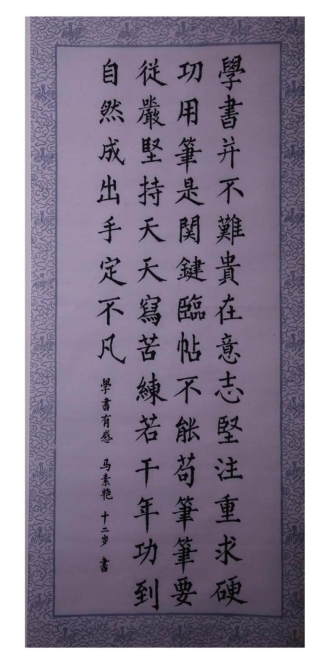 學書并不難貴在意志堅注重求硬
功用筆是関鍵臨帖不能苟筆筆要
從嚴堅持天天寫苦練若干年功到
自然成出手定不凡
學書有感 马素艳 十二岁 書